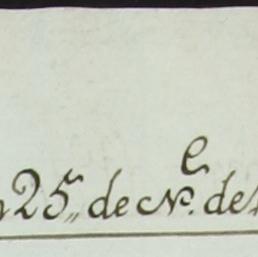 25,, de N.e de